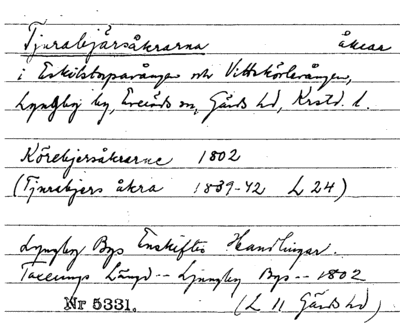 Tjurabjärsåkrarna åkrar
i Eskilstorpavången och Vittskövlevången,
Lyngby by, Everöds sn, Gärds hd, Krstd. l.
Körebjersåkrarne 1802
(Tjurabjers åkra 1839-42 L 24)
Lyngby Bys Enskiftes Handlingar.
Taxerings Längd -- Ljungby Bys -- 1802
Nr 5331. (L 11 Gärds hd)